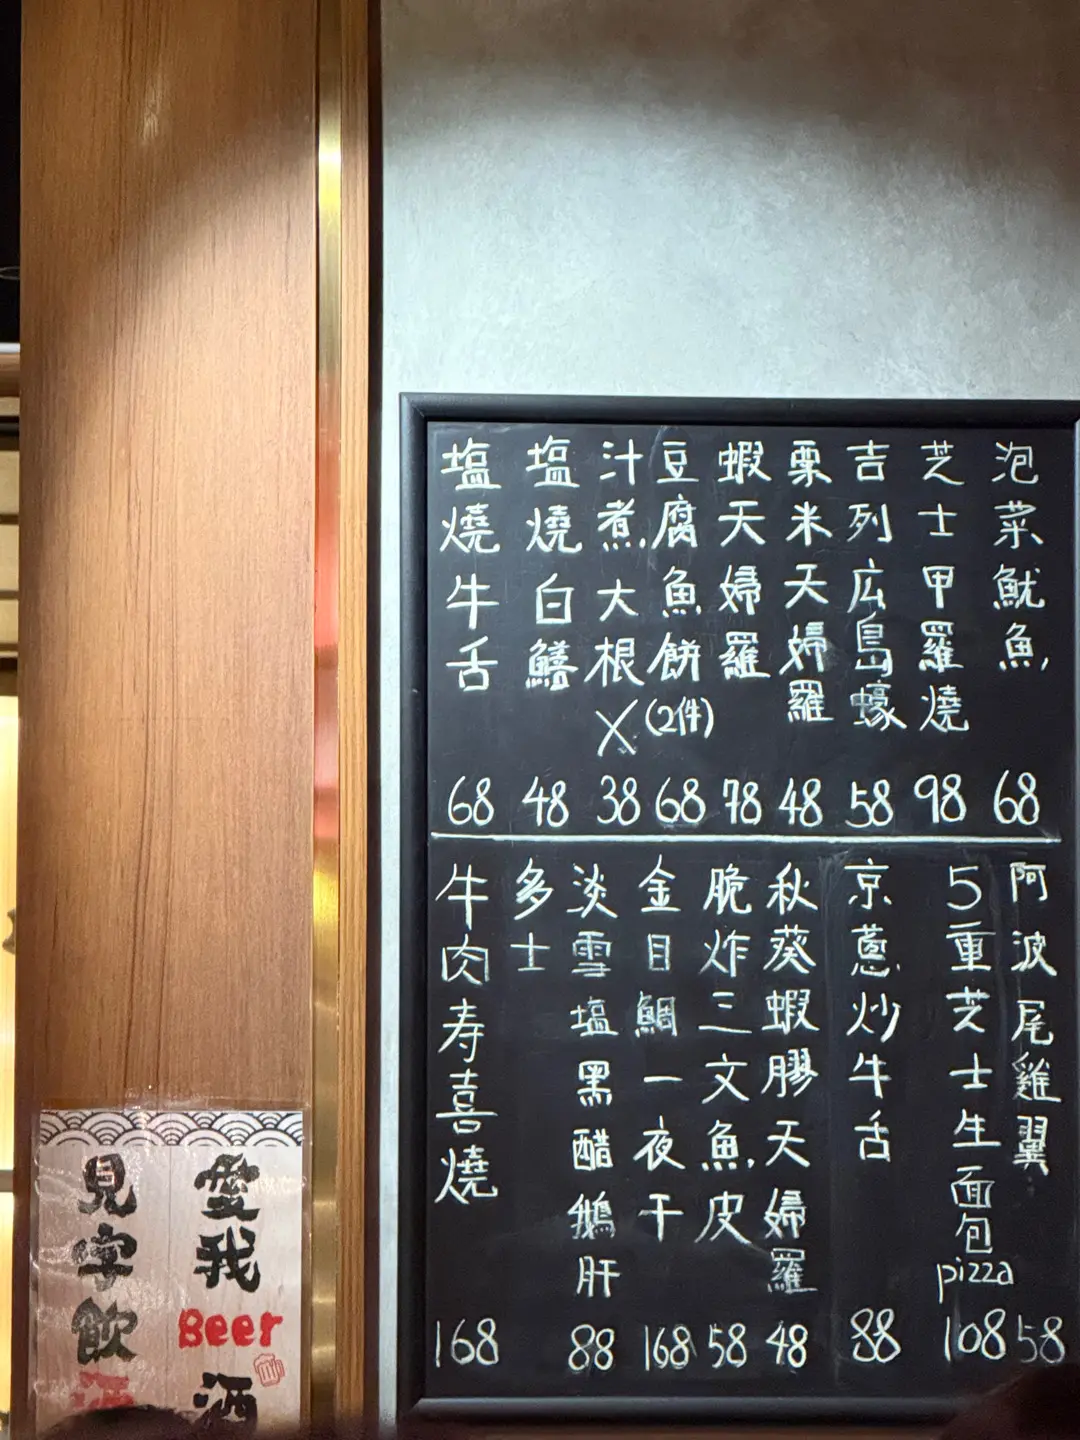 泡菜魷魚 68
芝士甲羅燒 98
吉列広島蠔 58
粟米天婦羅 48
蝦天婦羅 78
豆腐魚餅(2件) 68
汁煮大根 X 38
塩燒白鱔 48
塩燒牛舌 68
阿波尾雞翼 58
5重芝士生面包pizza 108
京蔥炒牛舌 88
秋葵蝦膠天婦羅 48
脆炸三文魚皮 58
金目鯛一夜干 168
淡雪塩黑醋鵝肝
多士 88
牛肉寿喜燒 168
愛我Beer酒
見字飲酒